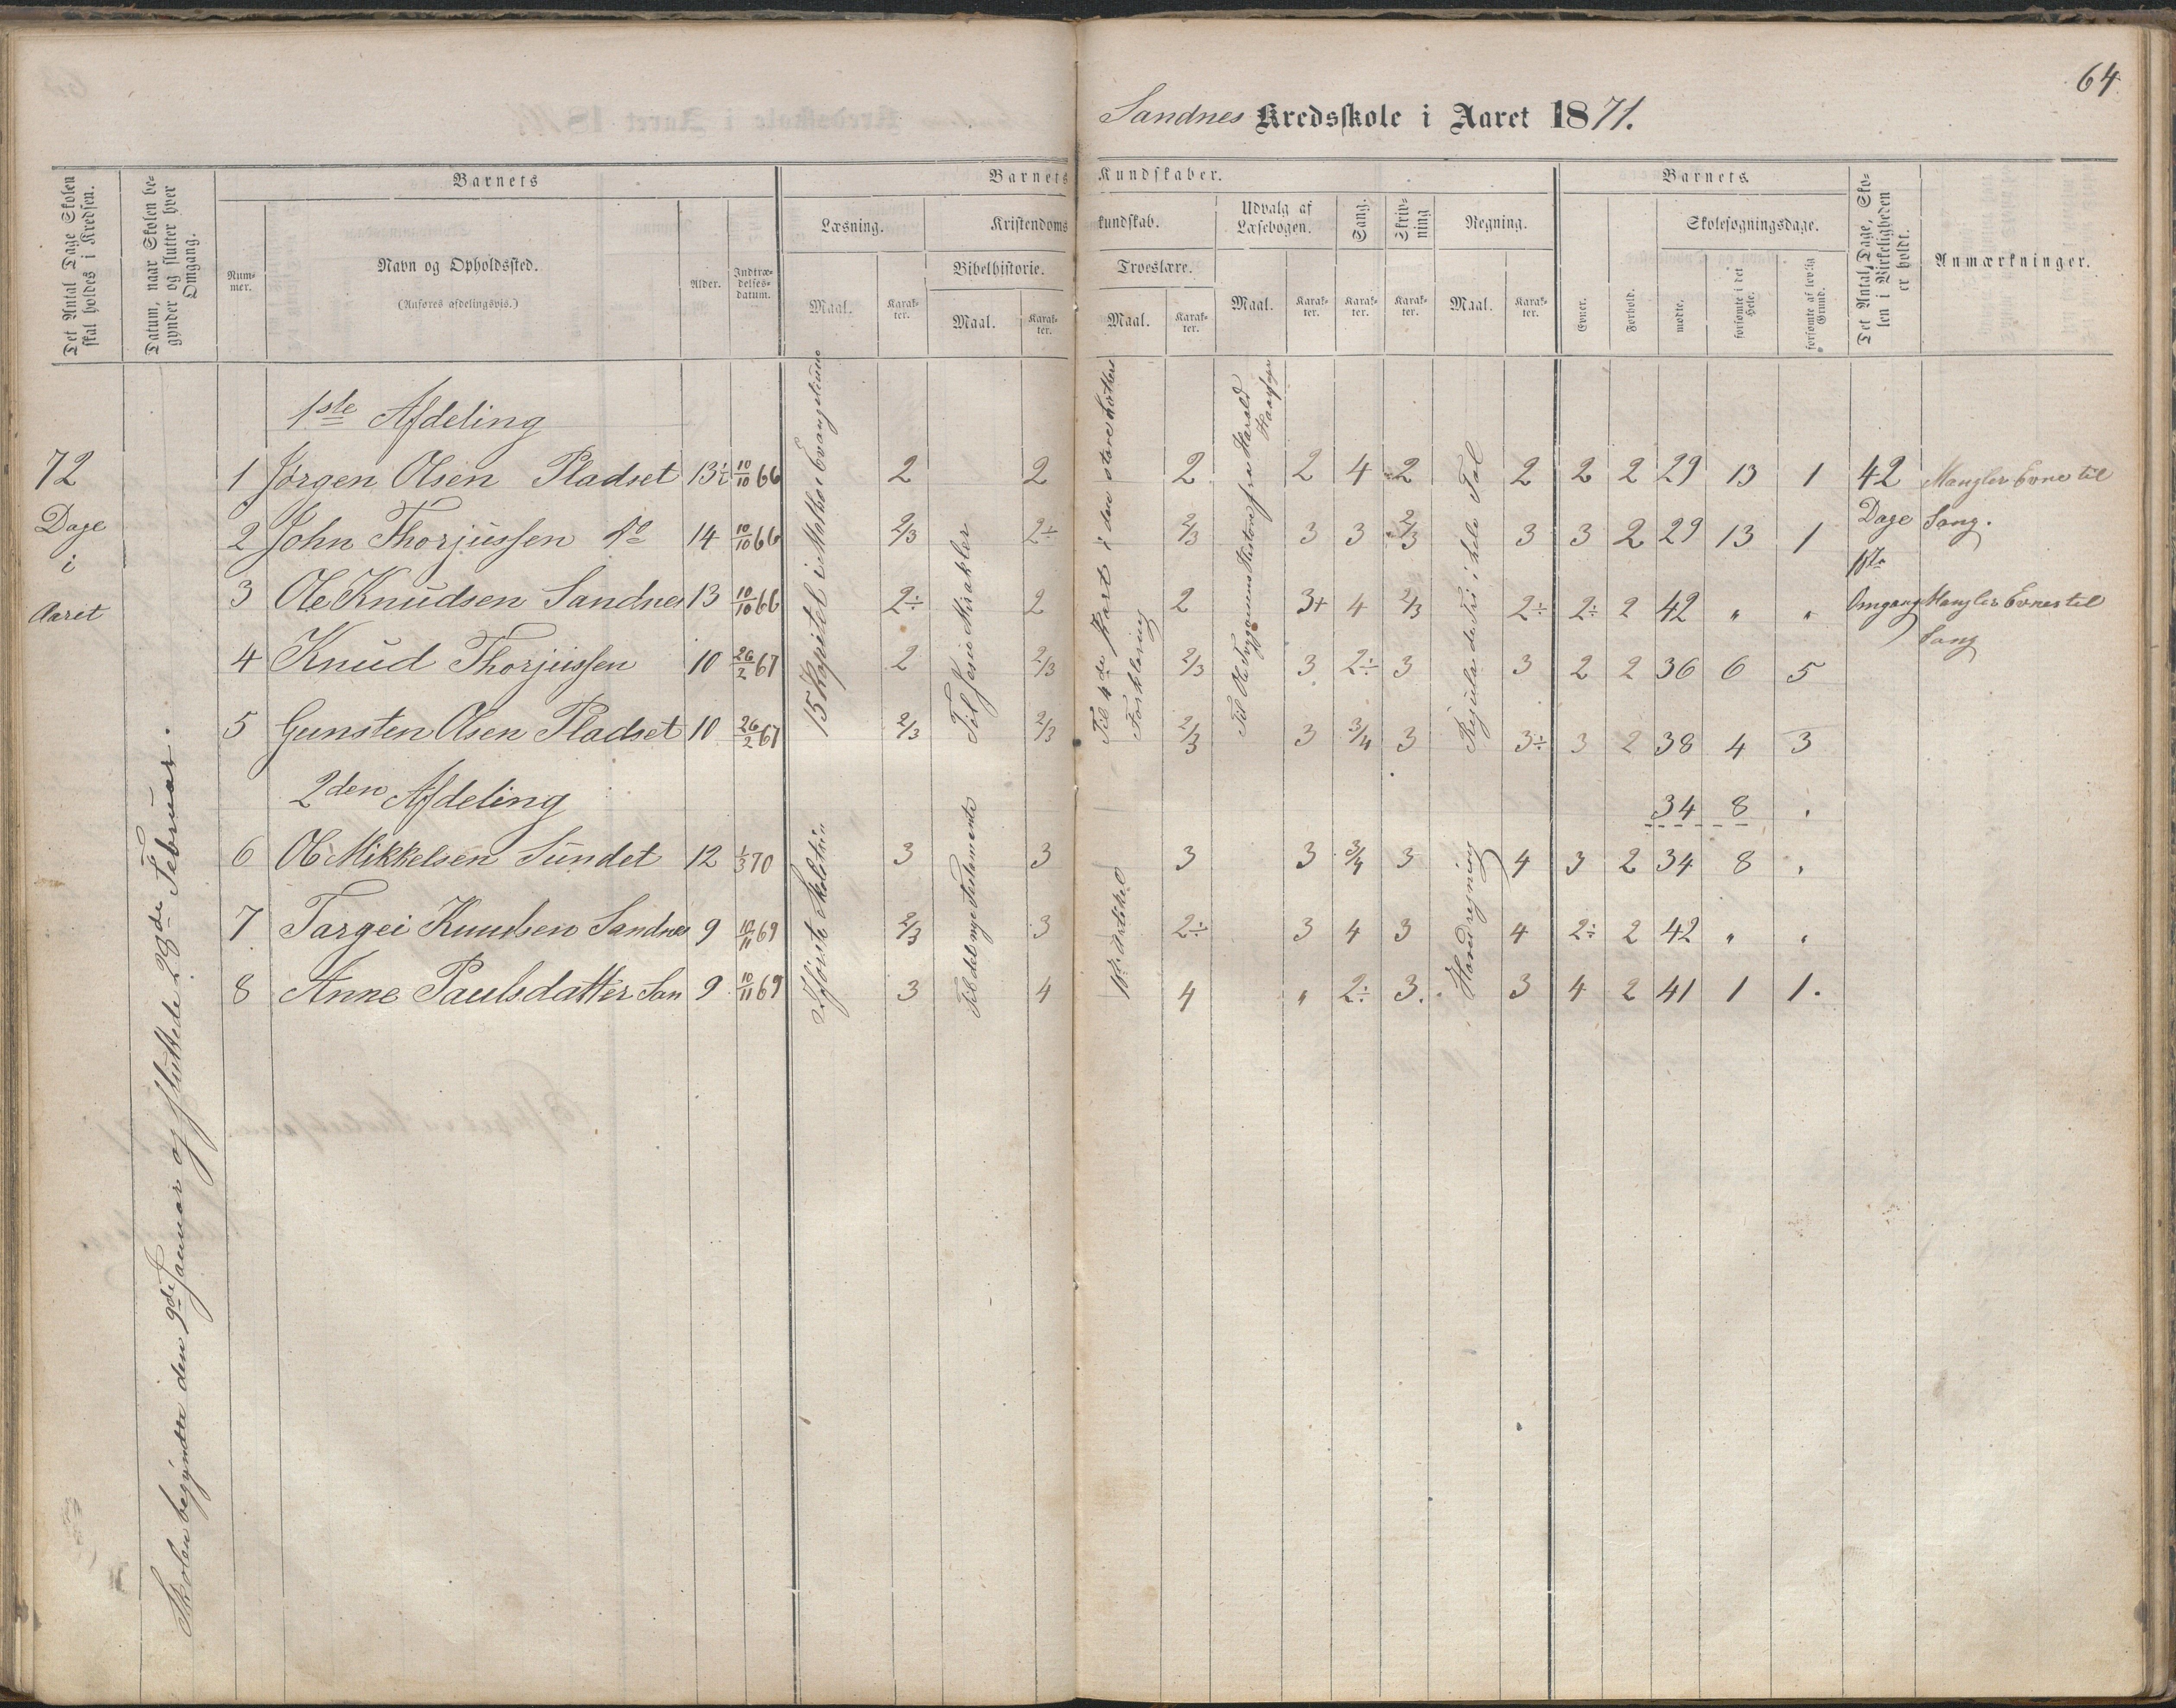 64
Sandnes Kredsskole i Aaret 1871.
Det Antal Dage Skolen skal holdes i Kredsen.
Datum, naar Skolen begynder og slutter hver Omgang.
Barnets
Barnets Kundskaber.
Barnets
Det Antal Dage, Skolen i Virkeligheden er holdt.
Anmærkninger.
Nummer.
Navn og Opholdssted.
(Anføres afdelingsvis.)
Alder.
Indtrædelsesdatum.
Læsning.
Kristendomskundskab.
Udvalg af Læsebogen.
Sang.
Skrivning
Regning.
Evner.
Forhold.
Skolesøgningsdage.
Bibelhistorie.
Troeslære.
mødte.
forsømte i det Hele.
forsømte af lovlig Grund.
Maal. Karakter. Maal. Karakter. Maal. Karakter. Maal. Karakter. Karakter. Karakter. Maal. Karakter.
72
Dage
i
Aaret
Skolen begyndte den 9de Januar og sluttede 28de Februar.
15 Kapitel i Mathæi Evangelium
Til Jesu Mirakler
Til 4de Part i den store
Forklaring
Til Ol. Tryggvasøns Historie fra Harald
Haarfager
Regula de Tri i hele Tal
1ste Afdeling
1 Jørgen Olsen Pladset 13½ 10/10 66 2 2 2 2 4 2 2 2 2 29 13 1 42 Mangler Evne til
2 John Thorjussen do 14 10/10 66 2/3 2÷ 2/3 3 3 2/3 3 3 2 29 13 1 Dage Sang.
1ste
3 Ole Knudsen Sandnes 13 10/10 66 2÷ 2 2 3+ 4 2/3 2÷ 2÷ 2 42 " " Omgang Mangler Evnes til
Sang
4 Knud Thorjussen 10 26/2 67 2 2/3 2/3 3 2÷ 3 3 2 2 36 6 5
5 Gunsten Olsen Pladset 10 26/2 67 2/3 2/3 2/3 3 3/4 3 3÷ 3 2 38 4 3
2den Afdeling
34 8 .
2 første Skoletrin
Til det nye Testamente
1ste Artikel
Hovedregning
6 Ole Mikkelsen Sundet 12 1/3 70 3 3 3 3 3/4 3 4 3 2 34 8 .
7 Targei Knudsen Sandnes 9 10/11 69 2/3 3 2÷ 3 4 3 4 2÷ 2 42 " "
8 Anne Paulsdatter San 9 10/11 69 3 4 4 " 2÷ 3. 3 4 2 41 1 1.